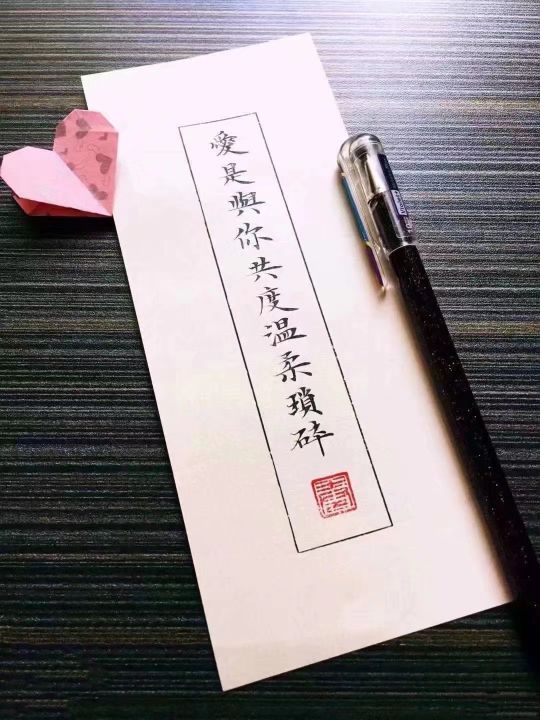 愛是與你共度温柔瑣碎